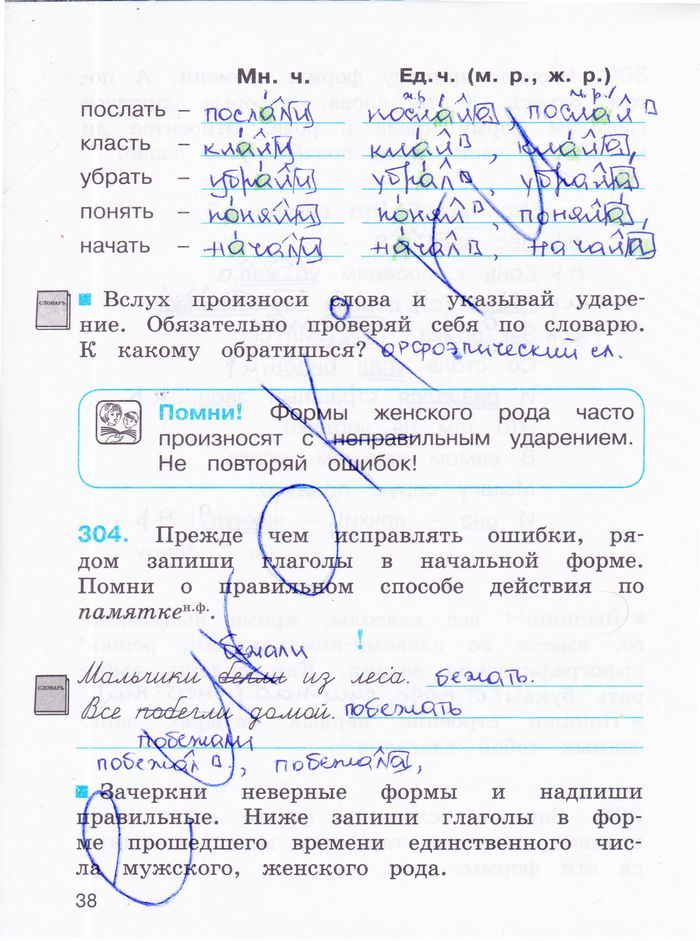 Мн. ч. Ед. ч. (м. р., ж. р.)
ж.р. м.р.
послать – послали послала послал
класть – клали клал, клала,
убрать – убрали убрал, убрала
понять – поняли понял, поняла,
начать – начали начал, начала
СЛОВАРЬ
Вслух произноси слова и указывай ударе-
ние. Обязательно проверяй себя по словарю.
К какому обратишься? орфоэпический сл.
Помни! Формы женского рода часто
произносят с неправильным ударением.
Не повторяй ошибок!
304. Прежде чем исправлять ошибки, ря-
дом запиши глаголы в начальной форме.
Помни о правильном способе действия по
памятке н.ф.
бежали !
СЛОВАРЬ
Мальчики бегли из леса. бежать.
Все побегли домой. побежать
побежали
побежал, побежала,
Зачеркни неверные формы и надпиши
правильные. Ниже запиши глаголы в фор-
ме прошедшего времени единственного чис-
ла мужского, женского рода.
38